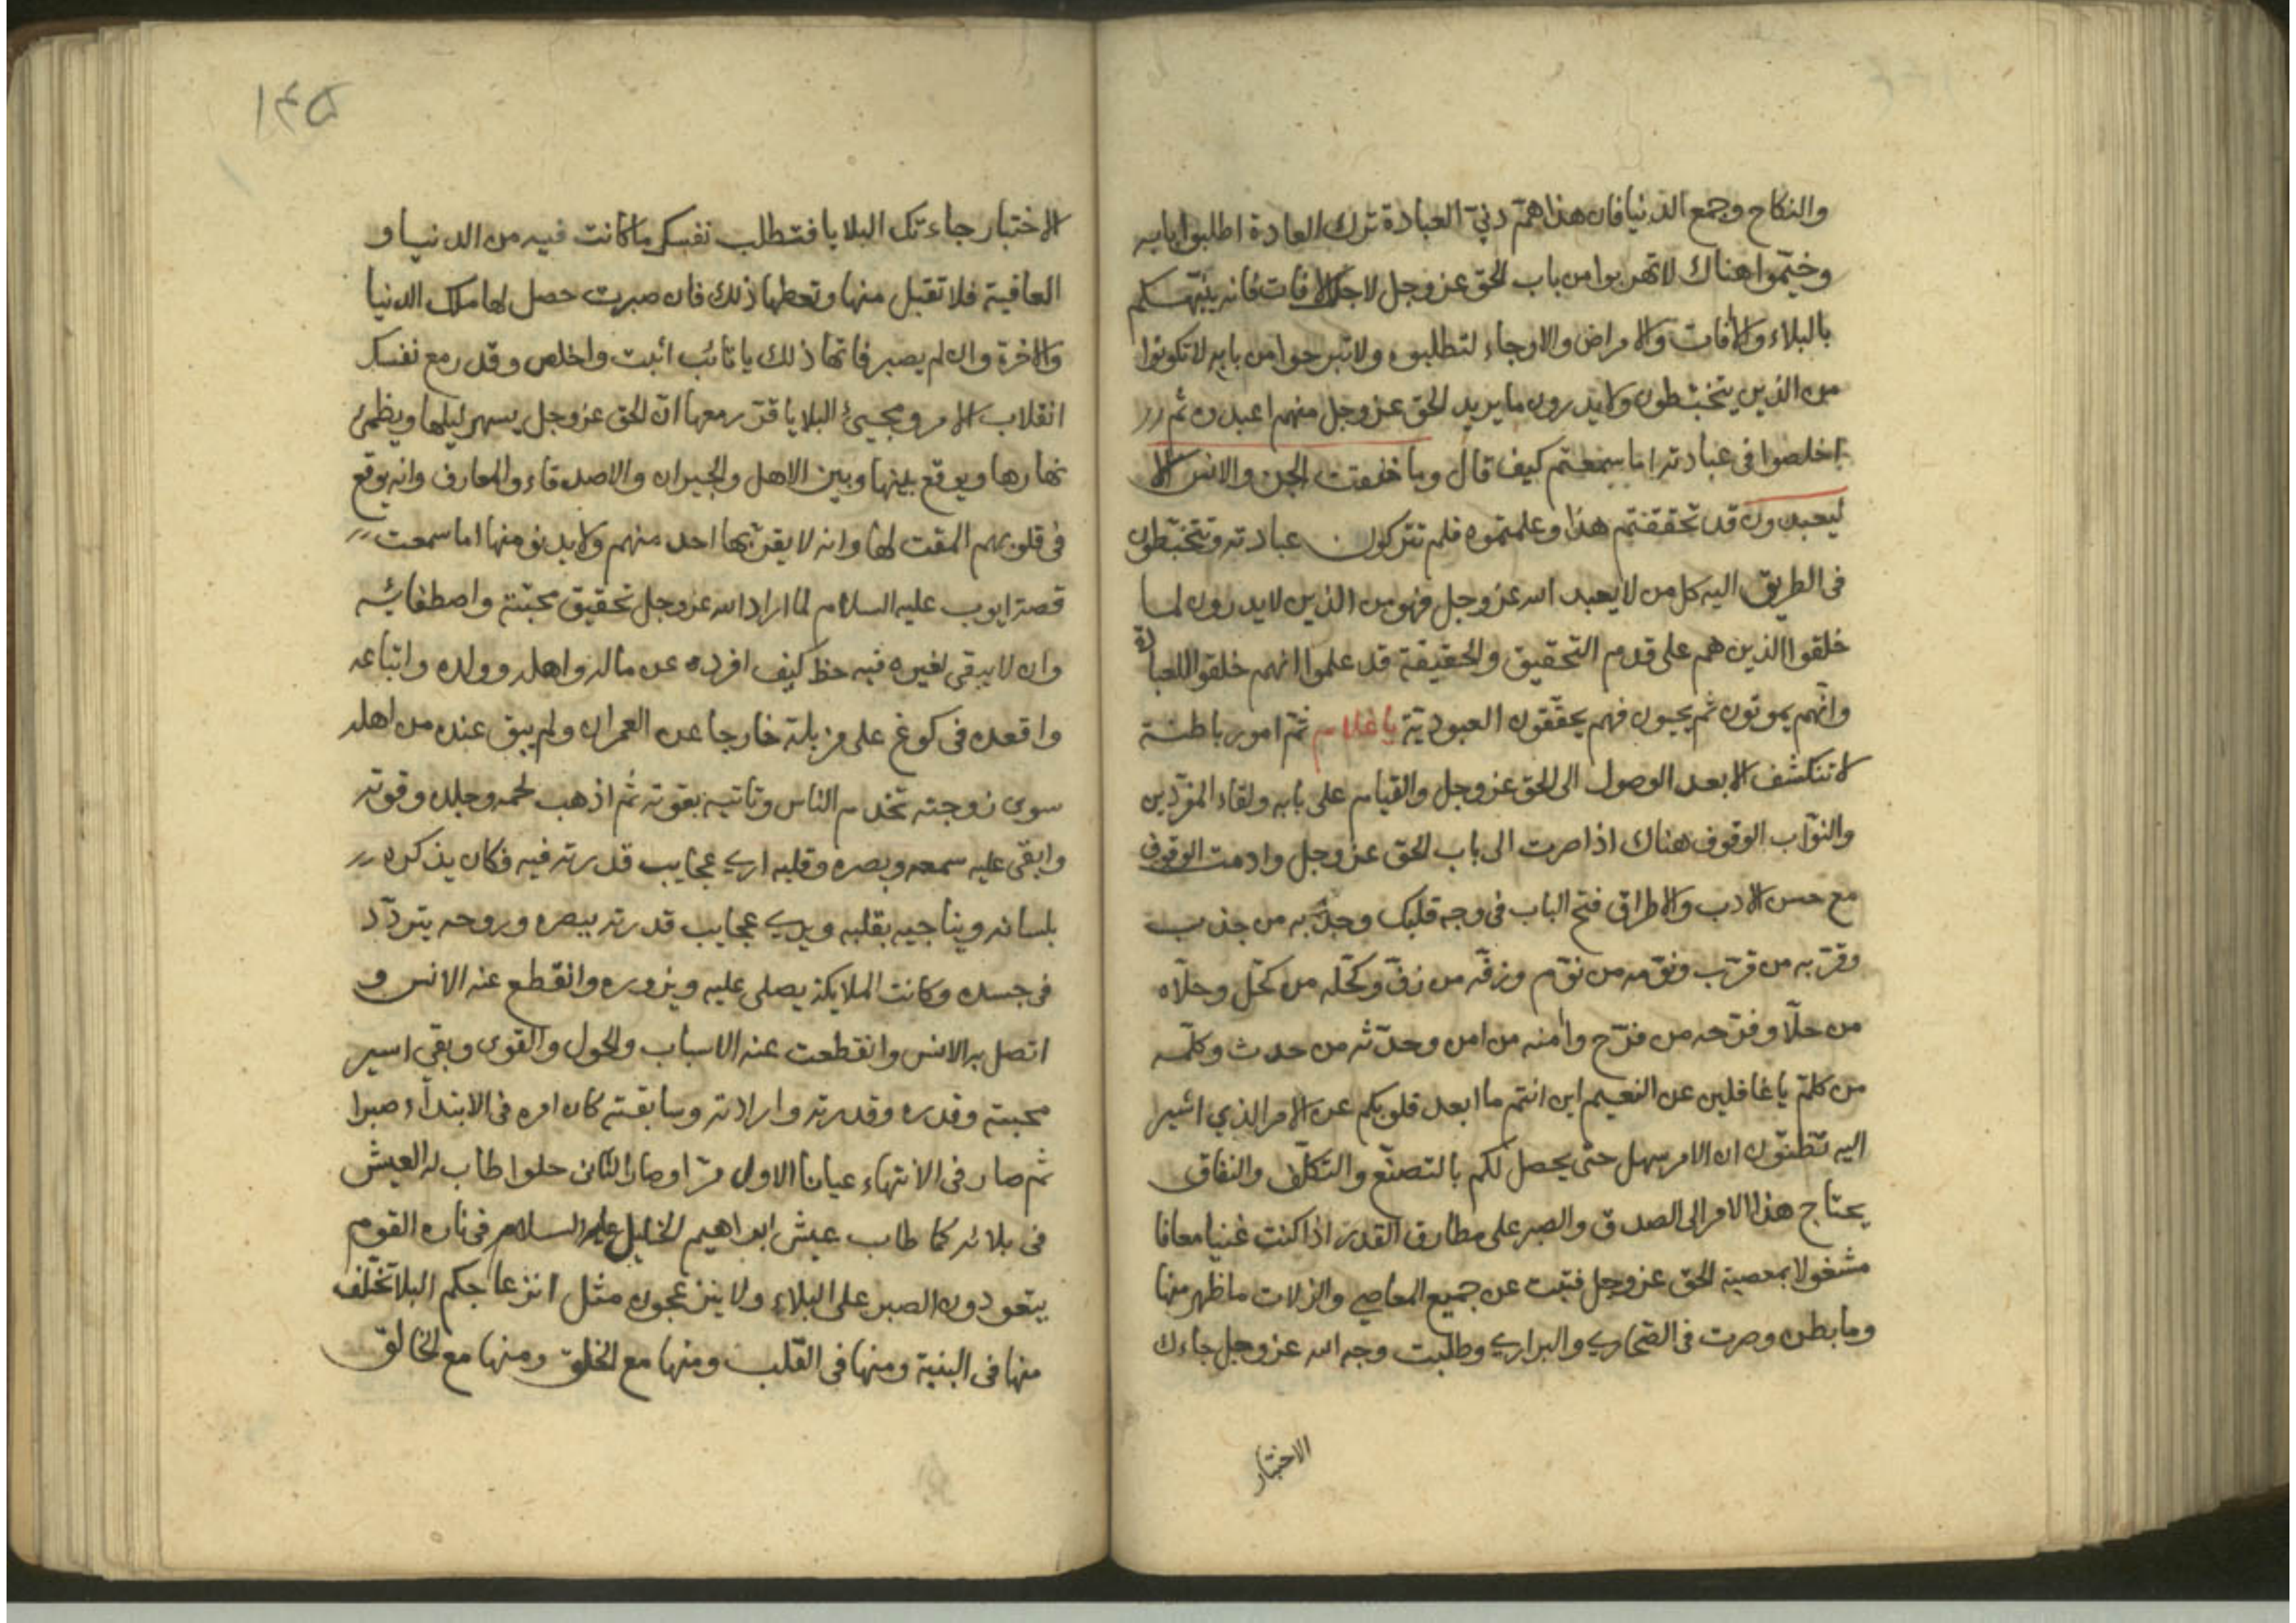 والنكاح وجمع الدنيا فان هذا همّ دنيّ العبادة ترك العادة اطلبوا بابه
وخيّموا هناك لا تهربوا من باب الحق عز وجل لاجل الافات فانه ينبّهكم
بالبلاء والافات والامراض والاوجاء لتطلبوه ولا تبرحوا من بابه لا تكونوا
من الذين يتخبّطون ولا يدرون ما يريد الحق عز وجل منهم اعبدوه ثم
اخلصوا فى عبادته اما سمعتم كيف قال وما خلقت الجن والانس الا
ليعبدون قد تحققتم هذا وعلمتموه فلم تتركون عبادته وتتخبّطون
فى الطريق اليه كل من لا يعبد الله عز وجل فهو من الذين لا يدرون لما
خلقوا الذين هم على قدم التحقيق والحقيقة قد علموا انهم خلقوا للعبادة
وانّهم يموتون ثم يحيون فهم يحقّقون العبوديّة يا غلام ثمّ امور باطنة
لا تنكشف الا بعد الوصول الى الحق عز وجل والقيام على بابه ولقاء المفرّدين
والنوّاب الوقوف هناك اذا صرت الى باب الحق عز وجل وادمت الوقوف
مع حسن الادب والاطراق فتح الباب فى وجه قلبك وجذبه من جذب
وقرّبه من قرّب ونوّمه من نوّم وزفّه من زفّ وكحّله من كحّل وحلّاه
من حلّا وفرّحه من فرّح وامنه من امن وحدّثه من حدث وكلّمه
من كلّم يا غافلين عن النعيم اين انتم ما ابعد قلوبكم عن الامر الذي اشير
اليه تظنّون ان الامر سهل حتى يحصل لكم بالتصنّع والتكلّف والنفاق
يحتاج هذا الامر الى الصدق والصبر على مطارق القدر اذا كنت غنيا معافا
مشغولا بمعصية الحق عز وجل فتبت عن جميع المعاصي والزلات ما ظهر منها
وما بطن وصرت فى الصحاري والبراري وطلبت وجه الله عز وجل جاءك
الاختبار
١٤٥
الاختبار جاءتك البلايا فتطلب نفسك ما كانت فيه من الدنيا و
العافية فلا تقبل منها وتعطها ذلك فان صبرت حصل لها ملك الدنيا
والاخرة وان لم يصبر فاتها ذلك يا تائب اثبت واخلص وقد رمع نفسك
انقلاب الامر ومجيئ البلايا قرّر معها انّ الحق عز وجل يسهر ليلها ويظمئ
نهارها ويوقع بينها وبين الاهل والجيران والاصدقاء والمعارف وانه يوقع
فى قلوبهم المقت لها وانه لا يقربها احد منهم ولا يدنو منها اما سمعت
قصة ايوب عليه السلام لما اراد الله عز وجل تحقيق محبّته واصطفائه
وان لا يبقى لغيره فيه حظ كيف افرده عن ماله واهله وولده واتباعه
واقعده فى كوخ على مزبلة خارجا عن العمران ولم يبق عنده من اهله
سوى زوجته تخدم الناس وتاتيه بقوته ثم اذهب لحمه وجلده وقوته
وابقى عليه سمعه وبصره وقلبه اري عجايب قدرته فيه فكان يذكره
بلسانه ويناجيه بقلبه ويري عجايب قدرته ببصره وروحه يتردّد
فى جسده وكانت الملايكة يصلى عليه ويزوره وانقطع عنه الانس و
اتصل به الانس وانقطعت عنه الاسباب والحول والقوى وبقى اسير
محبته وقدره وقدرته وارادته وسابقته كان امره فى الابتداء صبرا
ثم صار فى الانتهاء عيانا الاول مرّا وصار الثانى حلوا طاب له العيش
فى بلائه كما طاب عيش ابراهيم الخليل عليه السلام فى ناره القوم
يتعودون الصبر على البلاء ولا ينزعجون مثل انزعاجكم البلا تختلف
منها فى البنية ومنها فى القلب ومنها مع الخلق ومنها مع الخالق